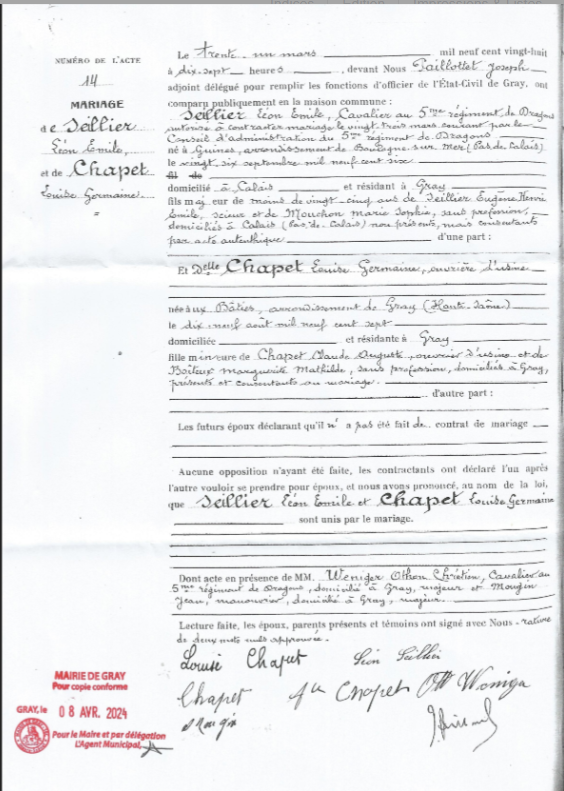 NUMÉRO DE L'ACTE
14
MARIAGE
de Seillier
Léon Emile,
et de Chapet
Louise Germaine
Le trente un mars mil neuf cent vingt-huit
à dix-sept heures, devant Nous Paillottet Joseph
adjoint délégué pour remplir les fonctions d'officier de l'État-Civil de Gray, ont
comparu publiquement en la maison commune :
Seillier Léon Emile, Cavalier au 5me régiment de Dragons
autorisé à contracter mariage le vingt trois mars courant par le
Conseil d'administration du 5me régiment de Dragons
né à Guines, arrondissement de Boulogne sur Mer (Pas de Calais)
le vingt six septembre mil neuf cent six
fil de
domicilié à Calais et résidant à Gray
fils majeur de moins de vingt-cinq ans de Seillier Eugène Henri
Emile, scieur et de Mouchon Marie Sophie, sans profession,
domiciliés à Calais (Pas-de-Calais) non présents, mais consentants
par acte authentique d'une part :
Et Delle Chapet Louise Germaine, ouvrière d'usine
née aux Bâties, arrondissement de Gray (Haute-Saône)
le dix-neuf août mil neuf cent sept
domiciliée et résidante à Gray
fille mineure de Chapet Claude Auguste, ouvrier d'usine et de
Boiteux Marguerite Mathilde, sans profession, domiciliés à Gray,
présents et consentants au mariage.
d'autre part :
Les futurs époux déclarant qu'il n'a pas été fait de contrat de mariage
Aucune opposition n'ayant été faite, les contractants ont déclaré l'un après
l'autre vouloir se prendre pour époux, et nous avons prononcé, au nom de la loi,
que Seillier Léon Emile et Chapet Louise Germaine
sont unis par le mariage.
Dont acte en présence de MM. Weniger Othon Chrétien, Cavalier au
5me régiment de Dragons, domicilié à Gray, majeur et Mougin
Jean, manouvrier, domicilié à Gray, majeur.
Lecture faite, les époux, parents présents et témoins ont signé avec Nous - rature
de deux mots nuls approuvée.
Louise Chapet Léon Seillier
Chapet Chapet Ott Weniger
Mougin
MAIRIE DE GRAY
Pour copie conforme
GRAY, le 08 AVR. 2024
Pour le Maire et par délégation
L'Agent Municipal,